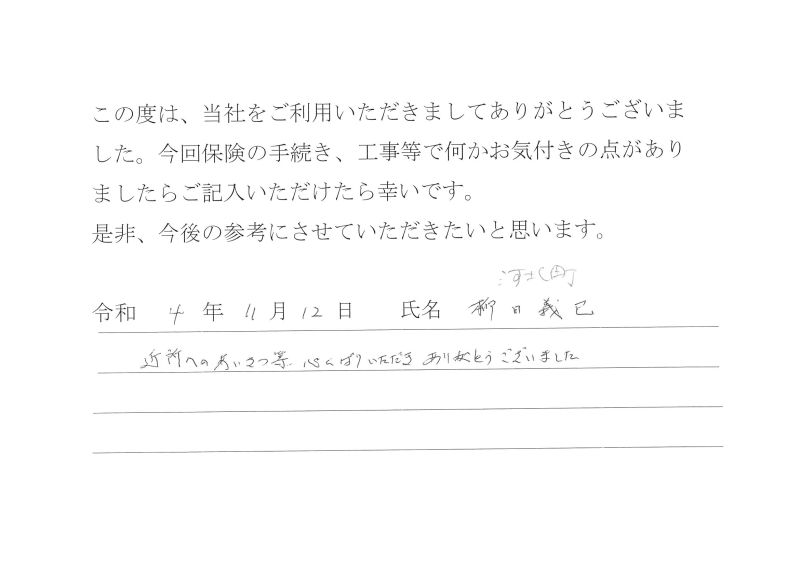 この度は、当社をご利用いただきましてありがとうございま
した。今回保険の手続き、工事等で何かお気付きの点があり
ましたらご記入いただけたら幸いです。
是非、今後の参考にさせていただきたいと思います。
河北町
令和 4 年 11 月 12 日 氏名 柳日義巳
近所へのあいさつ等 心くばりいただき ありがとうございました